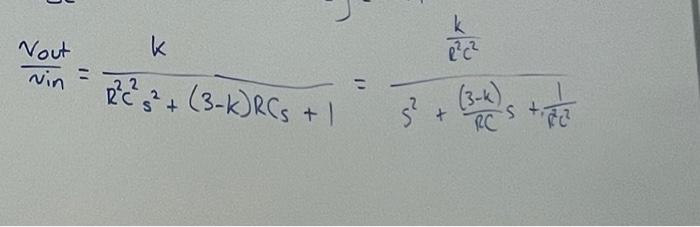 Vout/Vin = k/(R²C²s² + (3-k)RCs + 1) = (k/(R²C²))/(s² + ((3-k)/RC)s + 1/(R²C²))